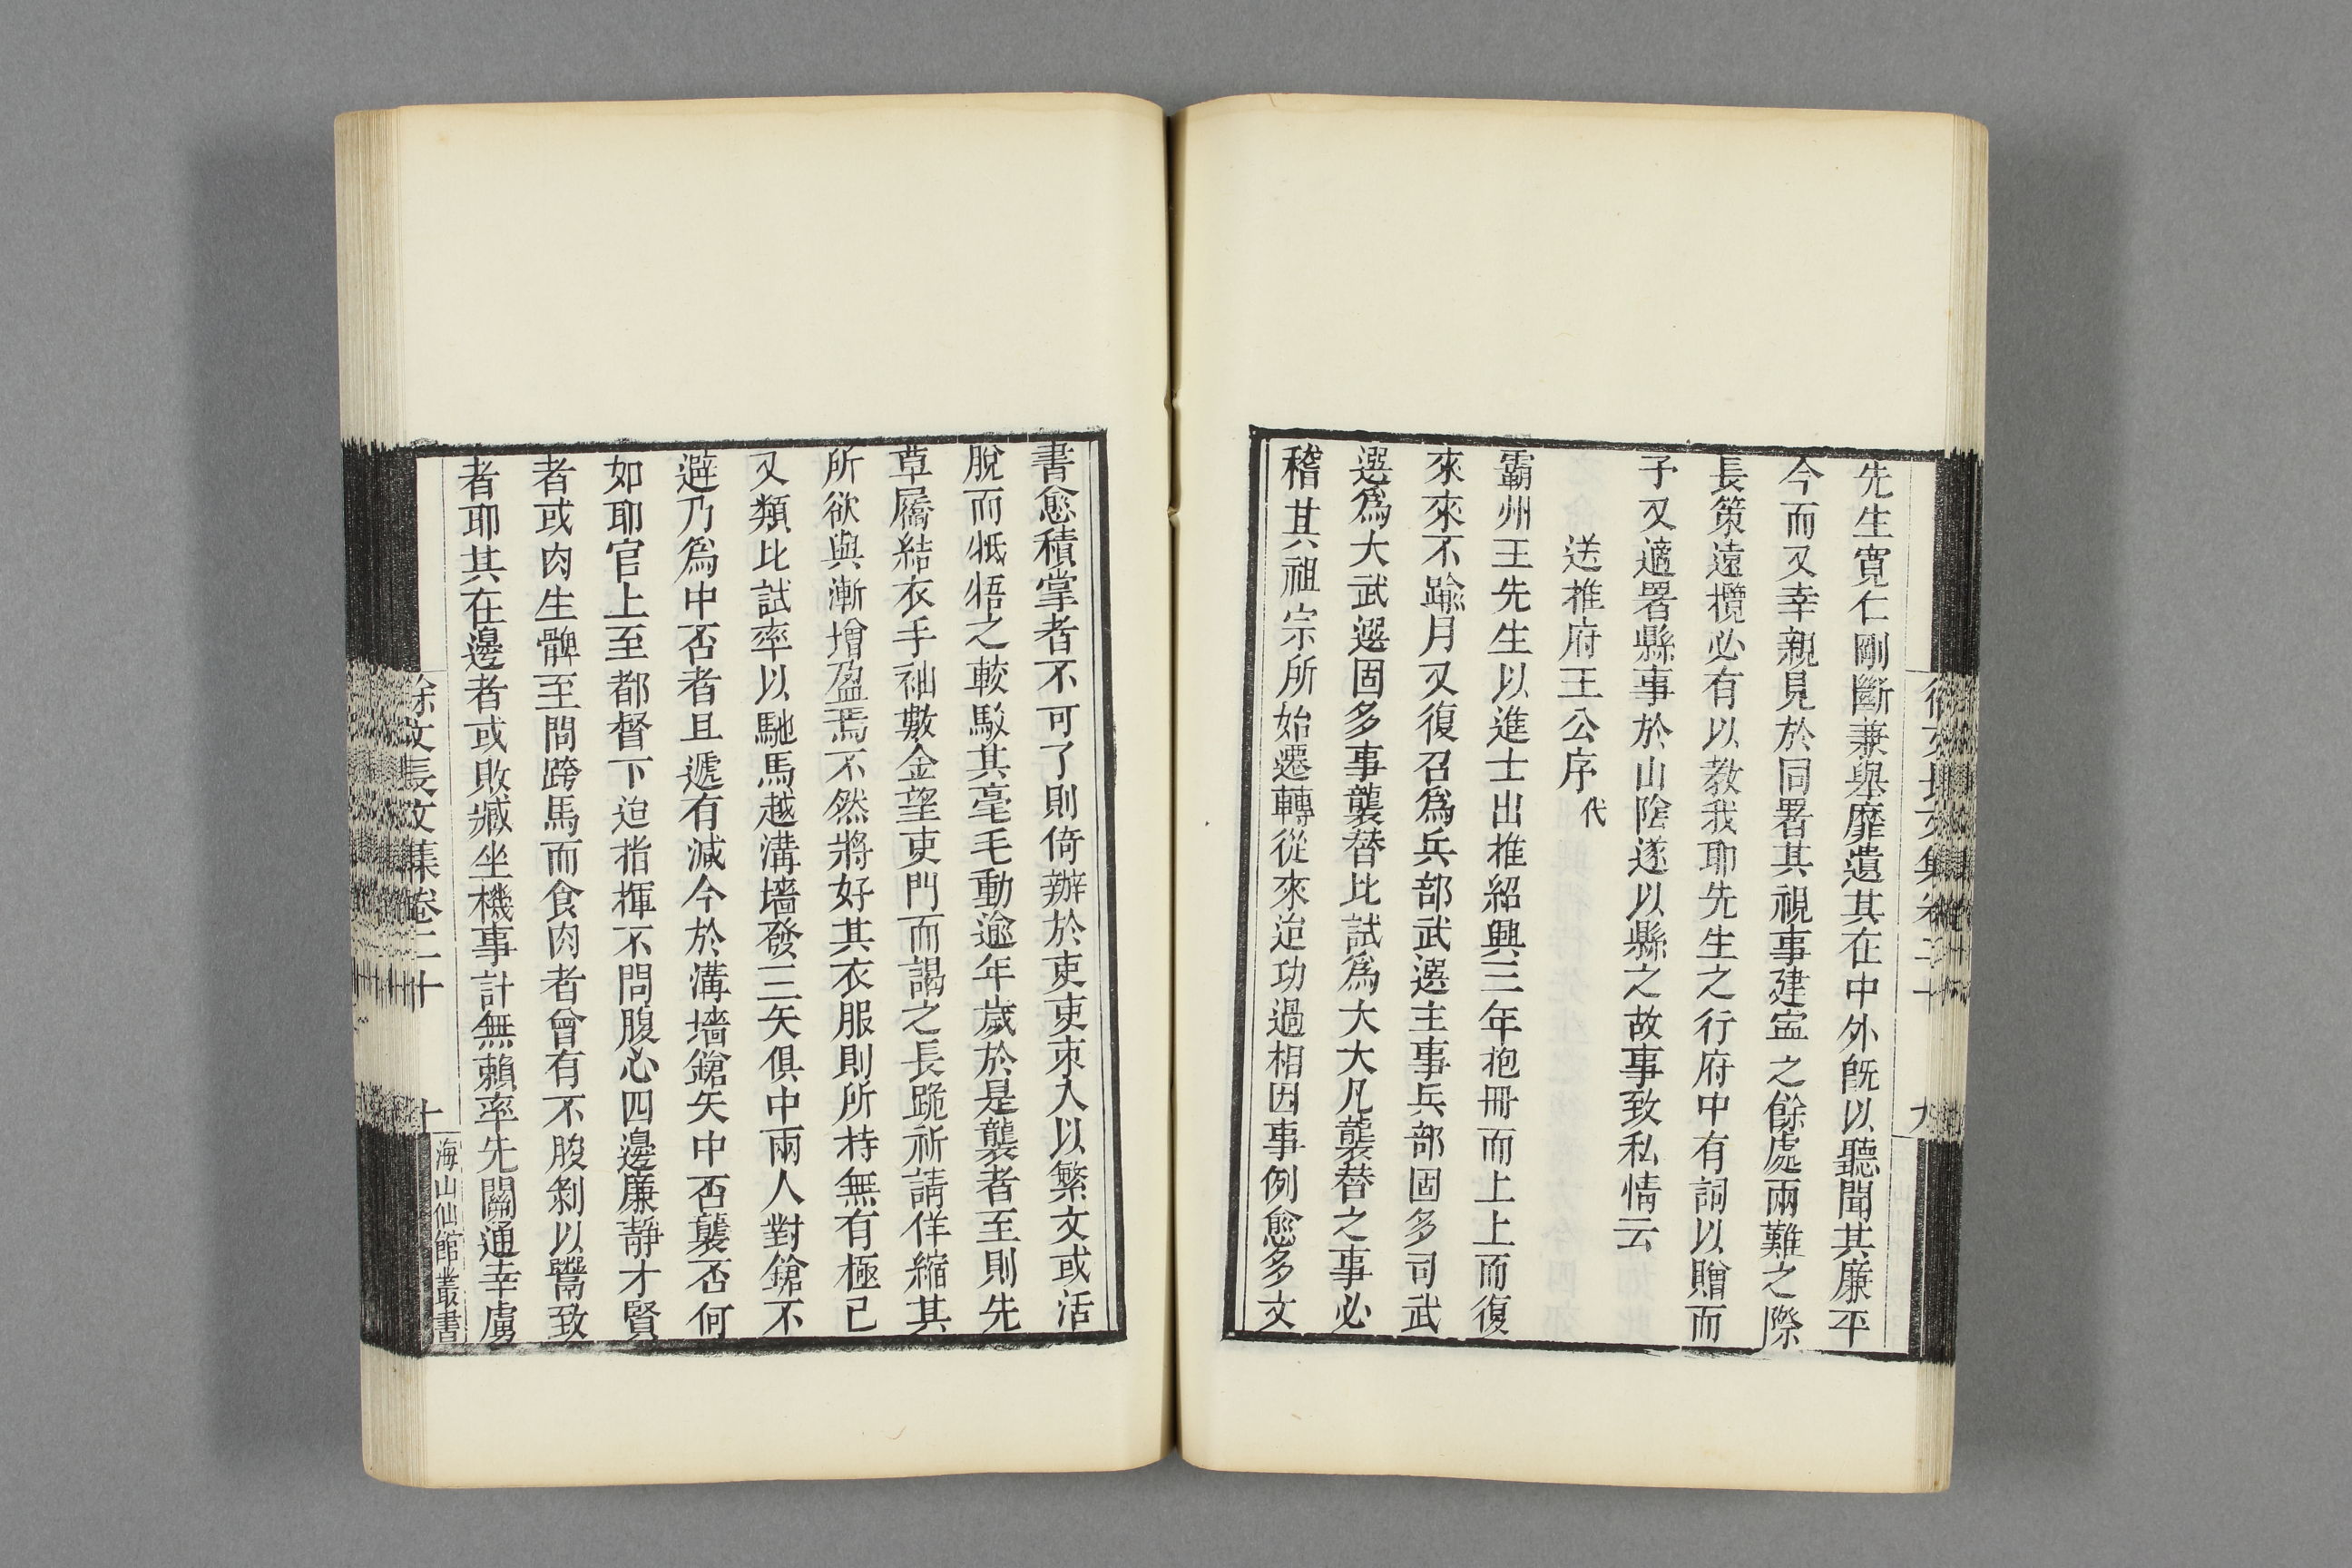 先生寬仁剛斷兼舉靡遺其在中外旣以聽聞其廉平
今而又幸親見於同署其視事建寍之餘處兩難之際
長策遠攬必有以教我耶先生之行府中有詞以贈而
子又適署縣事於山陰遂以縣之故事致私情云
送推府王公序代
霸州王先生以進士出推紹興三年抱冊而上上而復
來來不踰月又復召爲兵部武選主事兵部固多司武
選爲大武選固多事襲替比試爲大大凡襲替之事必
稽其祖宗所始遷轉從來迨功過相因事例愈多文
書愈積掌者不可了則倚辦於吏吏朿入以繁文或活
脫而牴牾之較駁其毫毛動逾年歲於是襲者至則先
草屩結衣手袖數金望吏門而謁之長跪祈請佯縮其
所欲與漸增盈焉不然將好其衣服則所持無有極已
又類比試率以馳馬越溝墻發三矢俱中兩人對鎗不
避乃爲中否者且遞有減今於溝墻鎗矢中否襲否何
如耶官上至都督下迨指揮不問腹心四邊廉靜才賢
者或肉生髀至問跨馬而食肉者曾有不朘剝以鬻致
者耶其在邊者或敗臧坐機事計無賴率先關通幸虜
徐文長文集卷二十
十
海山仙館叢書